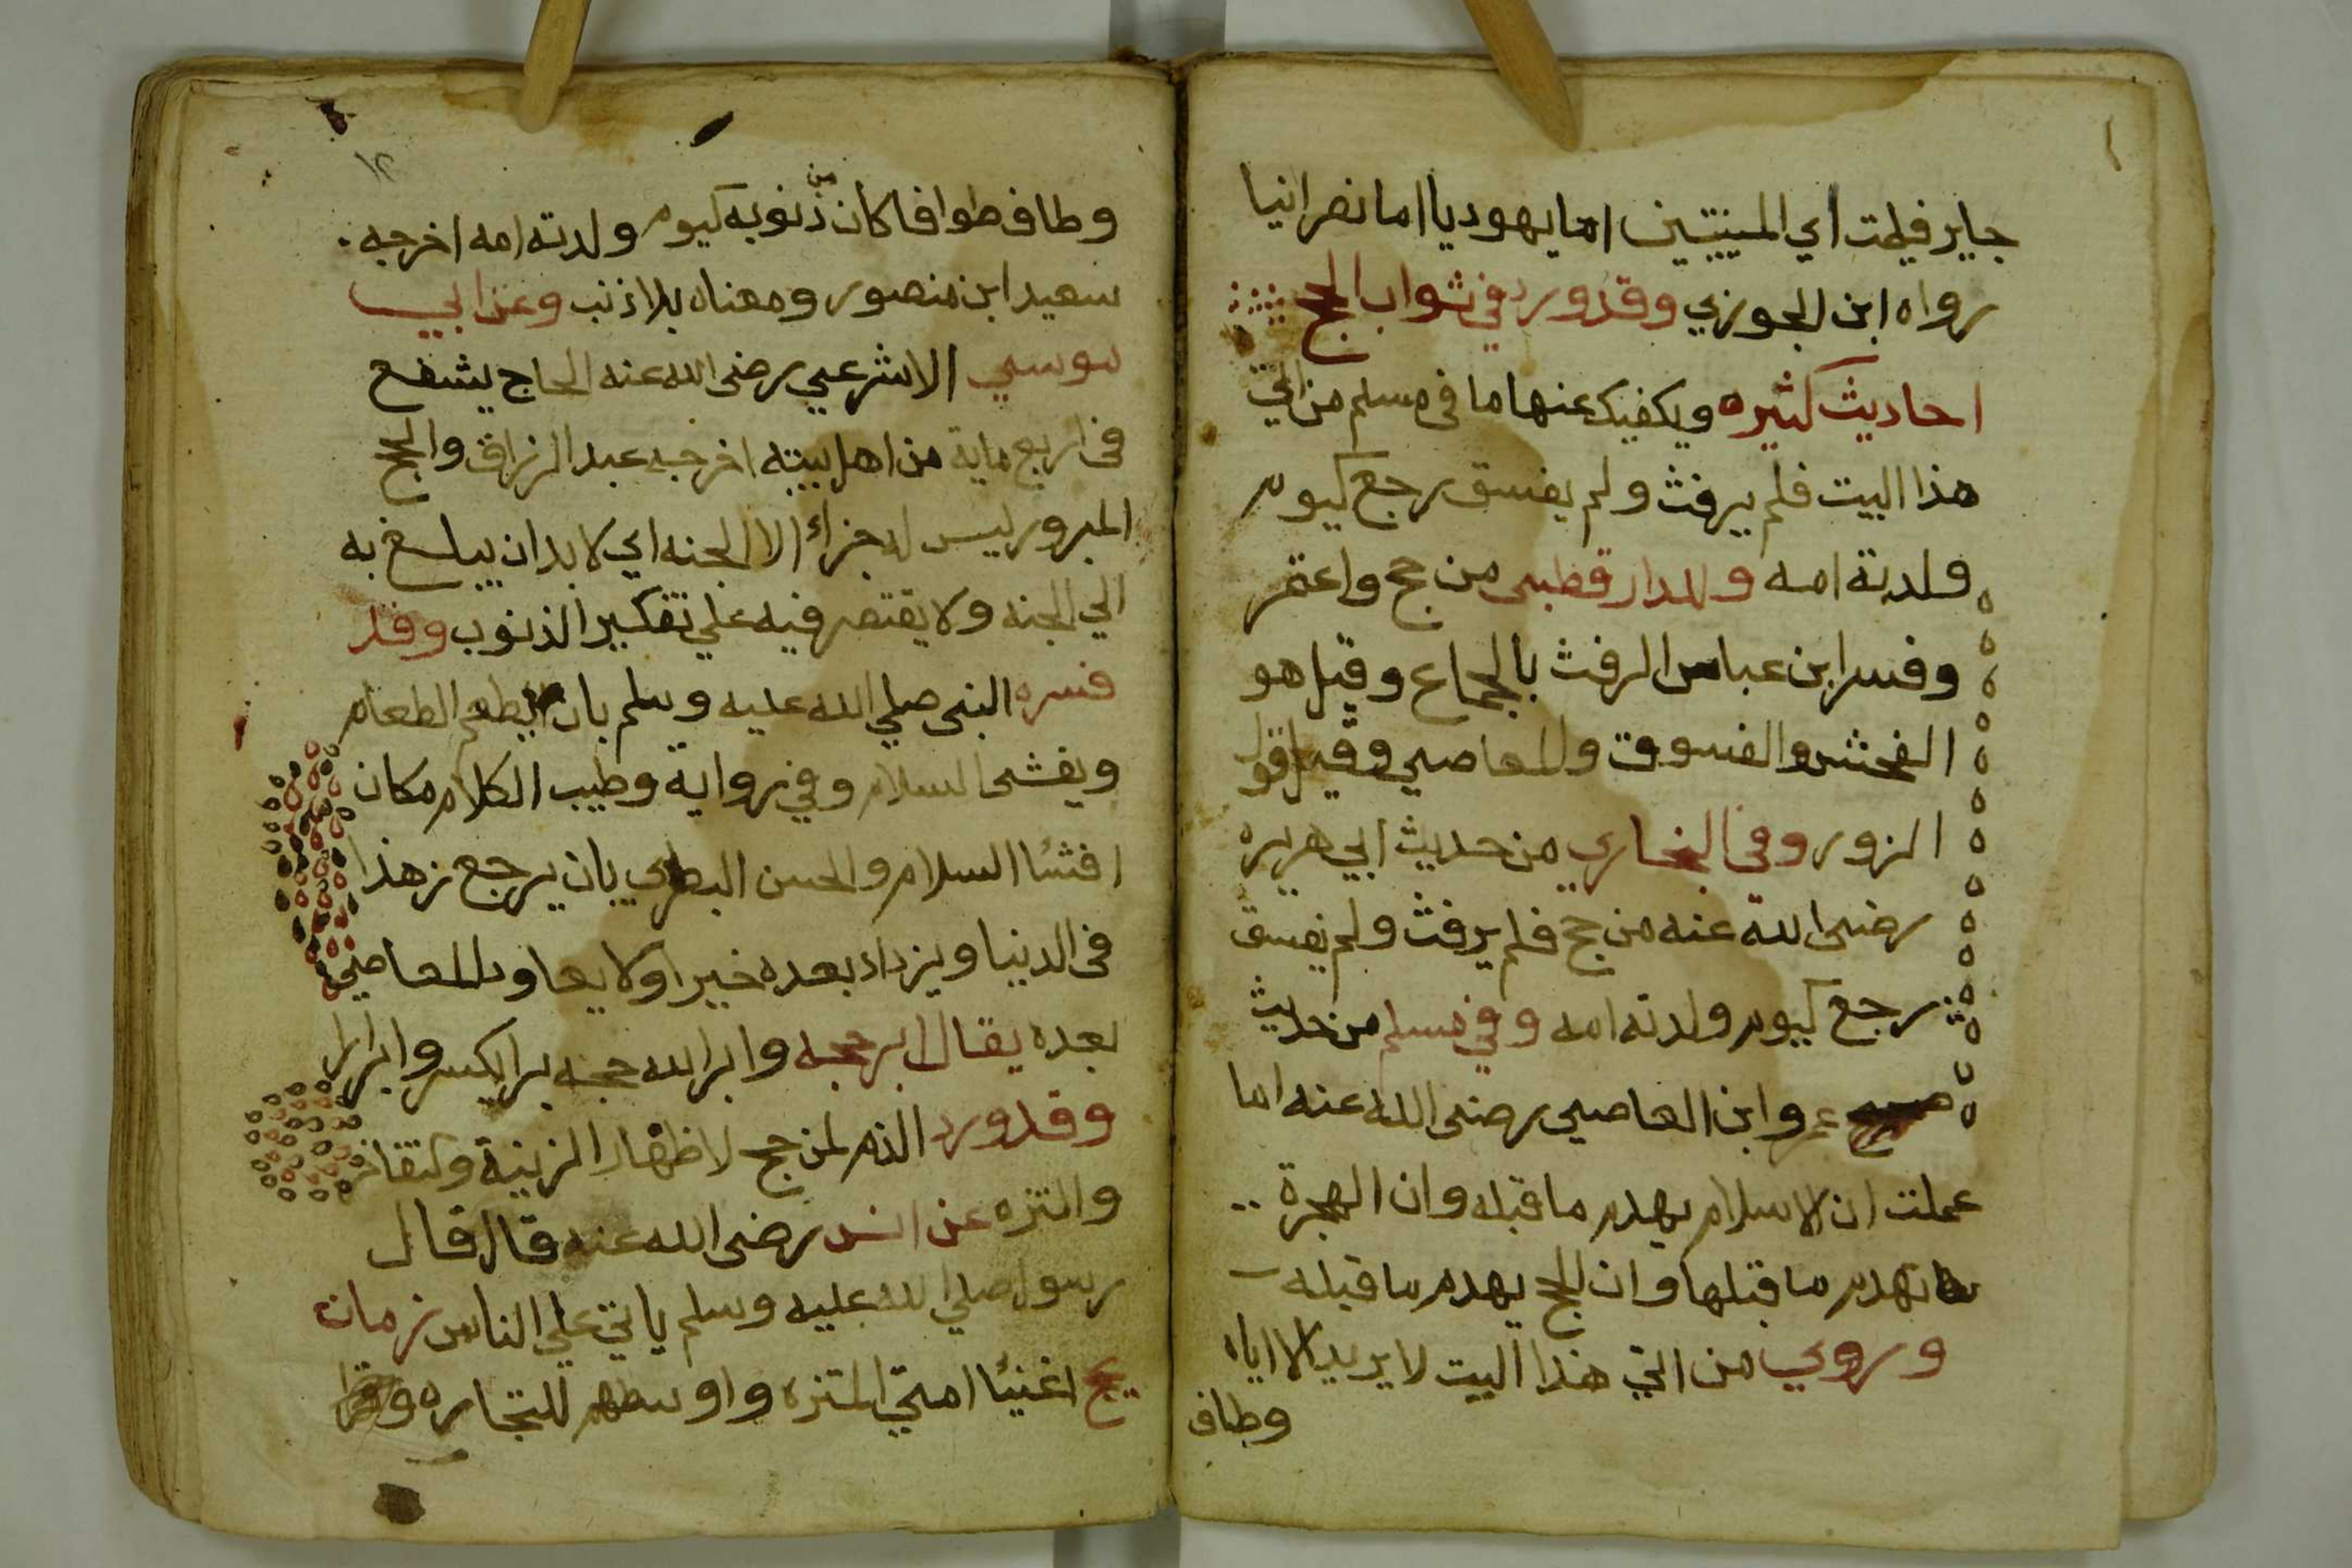 جاير فليمت اي الميتتين اما يهوديا اما نصرانيا
رواه ابن الجوزي وقد ورد في ثواب الحج
احاديث كثيره ويكفيك عنها ما في مسلم من اتي
هذا البيت فلم يرفث ولم يفسق رجع كيوم
ولدته امه وللدارقطني من حج واعتمر
وفسر ابن عباس الرفث بالجماع وقيل هو
الفحش والفسوق والمعاصي وقيل قول
الزور وفي البخاري من حديث ابي هريره
رضى الله عنه من حج فلم يرفث ولم يفسق
رجع كيوم ولدته امه وفي مسلم من حديث
عمرو ابن العاصي رضى الله عنه اما
عملت ان الاسلام يهدم ما قبله وان الهجرة
تهدم ما قبلها وان الحج يهدم ما قبله
وروي من اتي هذا البيت لا يريد الا اياه
وطاف
١٢
وطاف طوافا كان من ذنوبه كيوم ولدته امه اخرجه
سعيد ابن منصور ومعناه بلا ذنب وعن ابي
موسي الاشرعي رضى الله عنه الحاج يشفع
في اربع ماية من اهل بيته اخرجه عبد الرزاق والحج
المبرور ليس له جزاء الا الجنه اي لابد ان يبلغ به
الي الجنه ولا يقتصر فيه علي تفكير الذنوب وقد
فسره النبى صلي الله عليه وسلم بان يطعم الطعام
ويفشى السلام وفي رواية وطيب الكلام مكان
افشا السلام والحسن البصري بان يرجع زهدا
في الدنيا ويزداد بعده خيرا ولا يعاود المعاصي
بعده يقال ابر حجه وابر الله حجه برا بكسر وابرارا
وقد ورد الذم لمن حج لاظهار الزينة والتفاخر
والتنزه عن انس رضى الله عنه قال قال
رسول صلي الله عليه وسلم ياتي علي الناس زمان
يحج اغنيا امتي للتنزه واوسطهم للتجاره